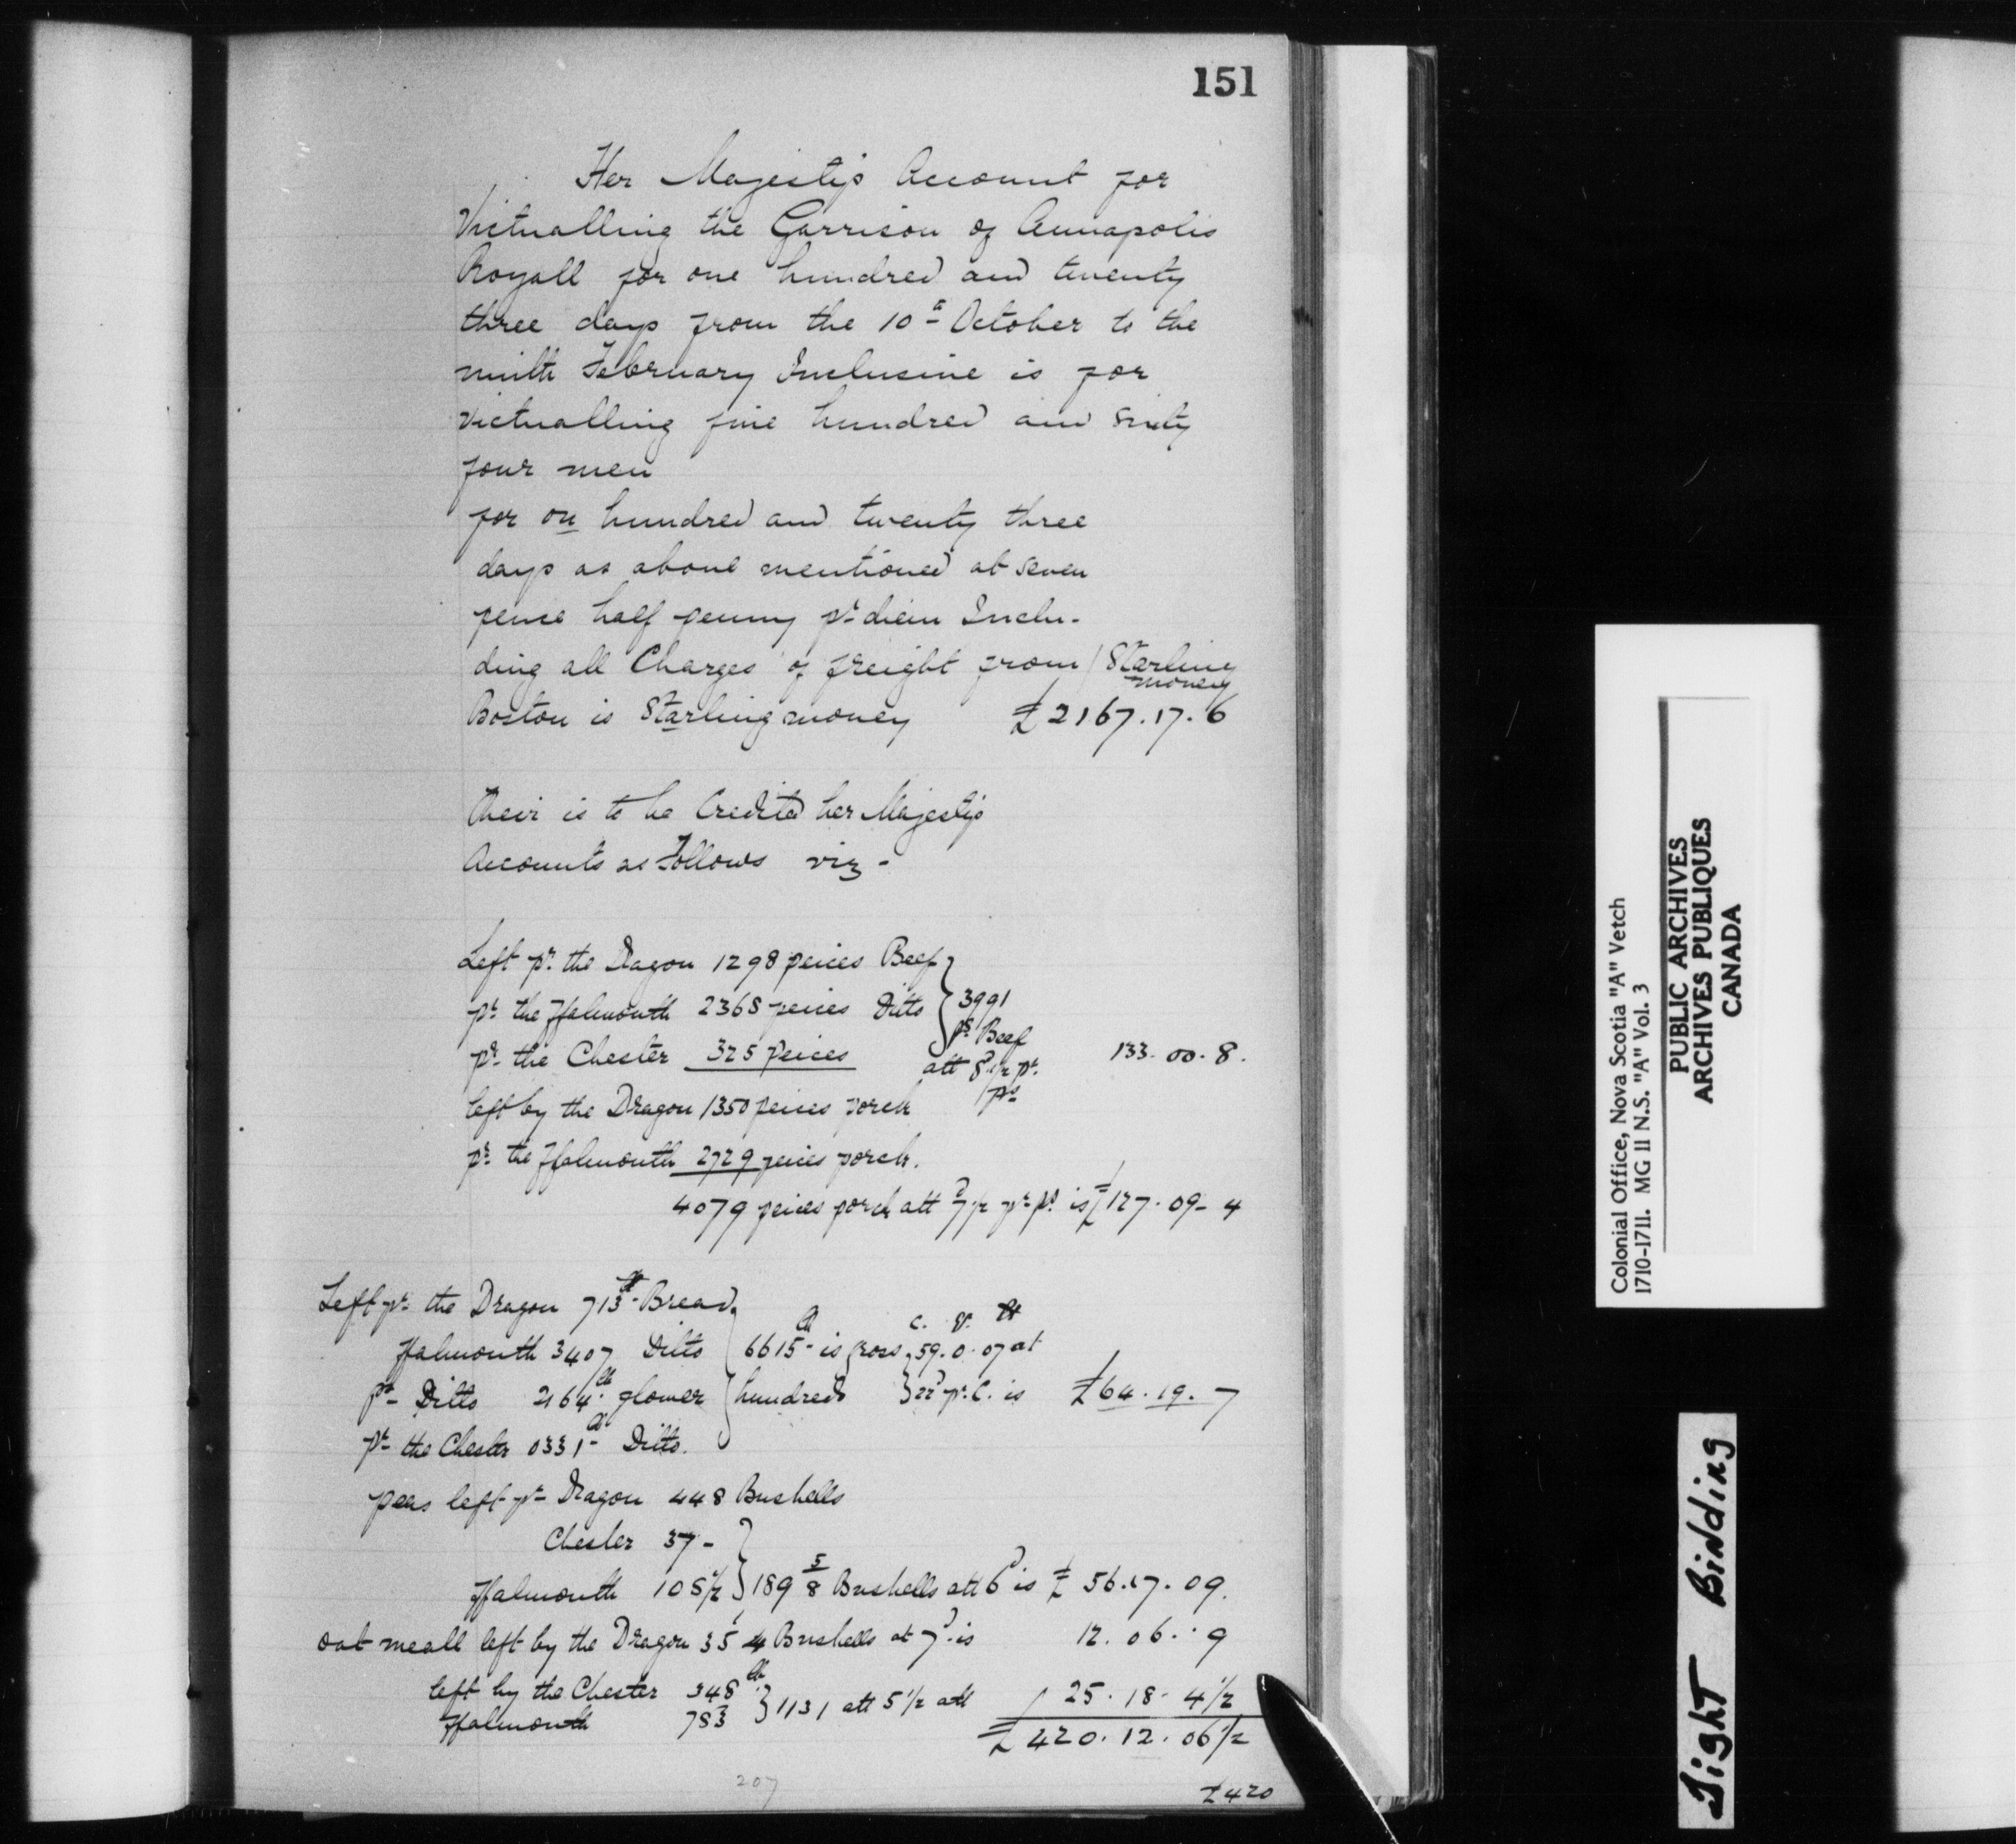 151
Her Majestys Account for
Victualling the Garrison of Annapolis
Royall for one hundred and twenty
three days from the 10th October to the
ninth February Inclusive is for
victualling five hundred and sixty
four men
for on hundred and twenty three
days as above mentioned at seven
pence half penny pr diem Inclu-
ding all Charges of freight from / Starling money
Boston is Starling money £2167.17.6
Their is to be Credited her Majestys
Accounts as Follows viz -
Left pr. the Dragon 1298 peices Beef
pr. the Ffalmouth 2368 peices Ditto } 3991 ps. Beef
pr. the Chester 325 peices att 8d 1/2 pr. ps 133.00.8.
left by the Dragon 1350 peices porck
pr. the Ffalmouth 2729 peices porck.
4079 peices porck att 7d 1/2 pr ps. is £127.09-4
Left pr. the Dragon 713lb Bread
Ffalmouth 3407 Ditto } 6615lb is gross 59.0.07 at
C. Q. lb
pr Ditto 2164lb flower hundreds } 22d pr. C. is £64.19.7
pr the Chester 0331lb Ditto.
peas left pr Dragon 448 Bushells
Chester 37-
Ffalmouth 108 1/2 } 189 5/8 Bushells att 6d is £56.17.09.
oat meall left by the Dragon 35 1/4 Bushells at 7d is 12.06..9
left by the Chester 348lb
Ffalmouth 783 } 1131 att 5 1/2 att 25.18-4 1/2
£420.12.06 1/2
£420
207
Colonial Office, Nova Scotia "A" Vetch
1710-1711. MG 11 N.S. "A" Vol. 3
PUBLIC ARCHIVES
ARCHIVES PUBLIQUES
CANADA
Tight Binding